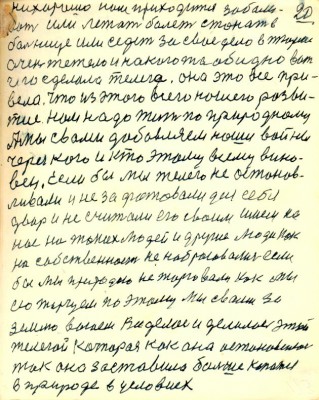 нихорошо нам приходится забале-
ват или летат балет стонат в
балнице или седет за свое дело в тюрме
очен тежело и какого та обидно вот
что зделала телега. она это все при-
вела, что из этого всего нашего розви-
тие. нам надо жит по природному
А мы сваим добавляем наши войны
через кого и кто этому всему вино-
вен, если бы мы телего не останов-
ливали и не за фатовали для себя
двар и не считали его своим
на таких людей и другие люди как
на собственост не набрасовалис если
бы мы природаю не торговали как мы
ею торгуем по этому мы сваим за
землю выем и делимся этой
телегой которая как она остановилас
так она заставила болше
в природе в условиех
20